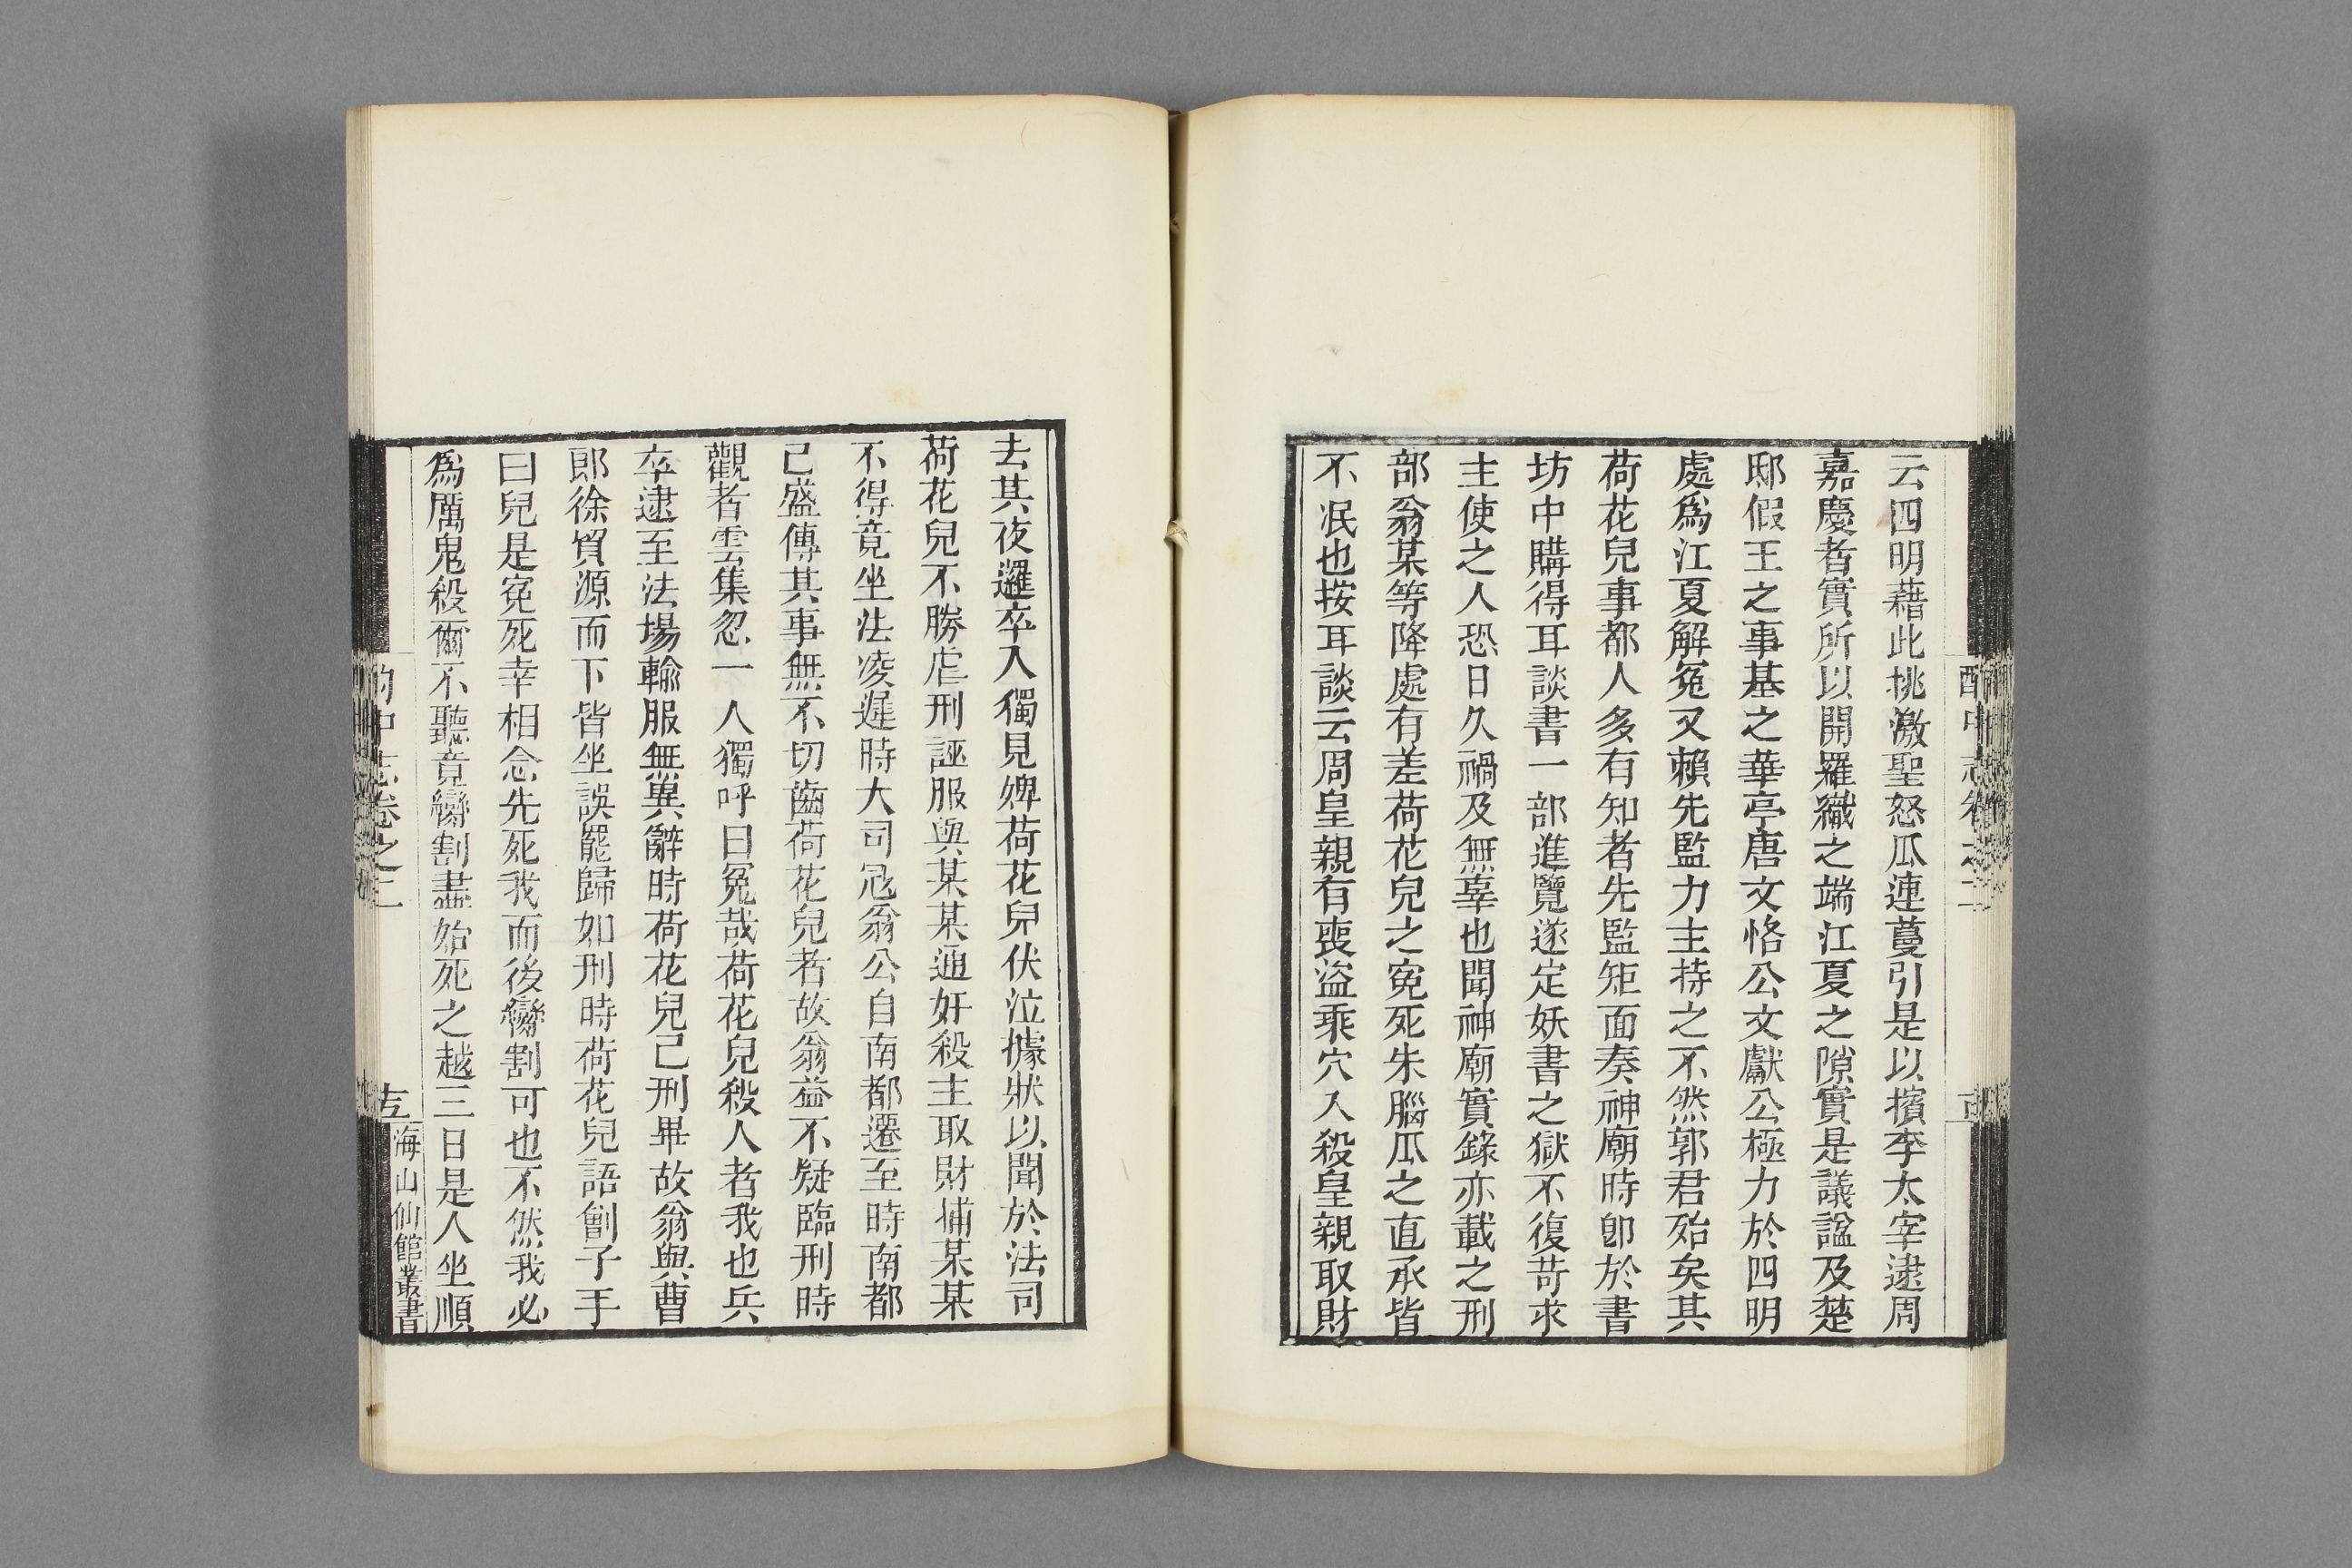 云四明藉此挑激聖怒瓜連蔓引是以擯李太宰逮周
嘉慶者實所以開羅織之端江夏之隙實是議諡及楚
邸假王之事基之華亭唐文恪公文獻公極力於四明
處爲江夏解冤又賴先監力主持之不然郭君殆矣其
荷花兒事都人多有知者先監矩面奏神廟時卽於書
坊中購得耳談書一部進覽遂定妖書之獄不復苛求
主使之人恐日久禍及無辜也聞神廟實錄亦載之刑
部翁某等降處有差荷花兒之寃死朱腦瓜之直承皆
不泯也按耳談云周皇親有喪盜乘穴入殺皇親取財
去其夜邏卒入獨見婢荷花兒伏泣據狀以聞於法司
荷花兒不勝虐刑誣服與某某通奸殺主取財捕某某
不得竟坐法凌遲時大司冦翁公自南都遷至時南都
己盛傳其事無不切齒荷花兒者故翁益不疑臨刑時
觀者雲集忽一人獨呼曰冤哉荷花兒殺人者我也兵
卒逮至法場輸服無異辭時荷花兒己刑畢故翁與曹
郎徐貿源而下皆坐誤罷歸如刑時荷花兒語劊子手
曰兒是寃死幸相念先死我而後臠割可也不然我必
爲厲鬼殺爾不聽竟臠割盡始死之越三日是人坐順
中志卷之二
海山仙館叢書